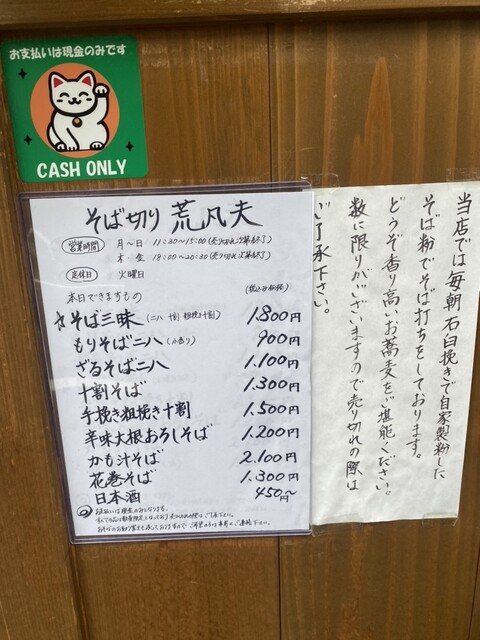 お支払いは現金のみです
CASH ONLY
そば切り 荒凡夫
営業時間 月〜日 11:30~15:00(売り切れ次第終了)
木・金 18:00~20:30(売り切れ次第終了)
定休日 火曜日
本日できますもの (税込み価格)
そば三昧(二八 十割 粗挽き十割) 1.800円
もりそば二八 900円
ざるそば二八 1.100円
十割そば 1.300円
手挽き粗挽き十割 1.500円
辛味大根おろしそば 1.200円
かも汁そば 2.100円
花巻そば 1.300円
日本酒 450円~
お支払いは現金のみになります。
当店では毎朝石臼挽きで自家製粉した
そば粉でそば打ちをしております。
どうぞ香り高いお蕎麦をご堪能ください。
数に限りがございますので売り切れの際は
ご了承下さい。